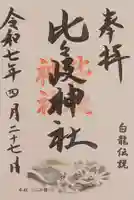 奉拝
比々多神社
令和七年四月二十七日
白龍伝説